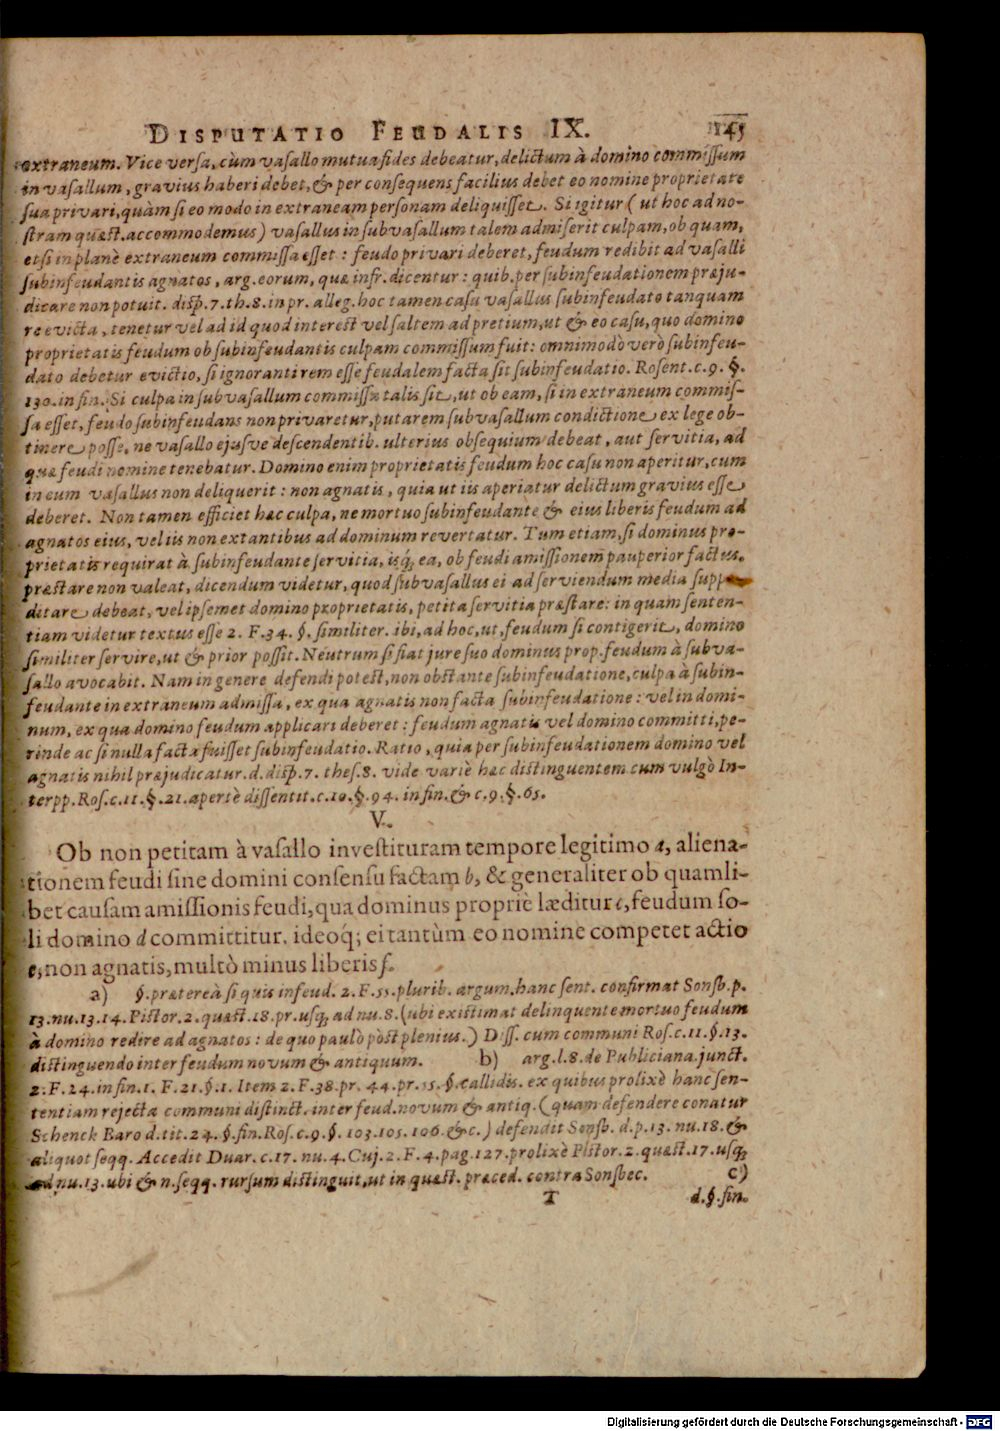 DISPUTATIO FEUDALIS IX. 145
extraneum. Vice versa, cùm vasallo mutua fides debeatur, delictum à domino commissum
in vasallum, gravius haberi debet, & per consequens facilius debet eo nomine proprietate
sua privari, quàm si eo modo in extraneam personam deliquisset. Si igitur (ut hoc ad no-
stram quæst. accommodemus) vasallus in subvasallum talem admiserit culpam, ob quam,
etsi in planè extraneum commissa esset: feudo privari deberet, feudum redibit ad vasalli
subinfeudantis agnatos, arg. eorum, quæ infr. dicentur: quib. per subinfeudationem præju-
dicare non potuit. disp. 7. th. 8. in pr. alleg. hoc tamen casu vasallus subinfeudato tanquam
re evicta, tenetur vel ad id quod interest vel saltem ad pretium, ut & eo casu, quo domino
proprietatis feudum ob subinfeudantis culpam commissum fuit: omnimodò verò subinfeu-
dato debetur evictio, si ignoranti rem esse feudalem facta sit subinfeudatio. Rosent. c. 9. §.
130. in fin. Si culpa in subvasallum commissa talis sit, ut ob eam, si in extraneum commis-
sa esset, feudo subinfeudans non privaretur, putarem subvasallum condictione ex lege ob-
tinere posse, ne vasallo ejusve descendentib. ulterius obsequium debeat, aut servitia, ad
quæ feudi nomine tenebatur. Domino enim proprietatis feudum hoc casu non aperitur, cum
in eum vasallus non deliquerit: non agnatis, quia ut iis aperiatur delictum gravius esse
deberet. Non tamen efficiet hæc culpa, ne mortuo subinfeudante & eius liberis feudum ad
agnatos eius, vel iis non extantibus ad dominum revertatur. Tum etiam, si dominus pro-
prietatis requirat à subinfeudante servitia, isq́; ea, ob feudi amissionem pauperior factus,
præstare non valeat, dicendum videtur, quod subvasallus ei ad serviendum media suppe-
ditare debeat, vel ipsemet domino proprietatis, petita servitia præstare: in quam senten-
tiam videtur textus esse 2. F. 34. §. similiter. ibi, ad hoc, ut, feudum si contigerit, domino
similiter servire, ut & prior possit. Neutrum si fiat jure suo dominus prop. feudum à subva-
sallo avocabit. Nam in genere defendi potest, non obstante subinfeudatione, culpa à subin-
feudante in extraneum admissa, ex qua agnatis non facta subinfeudatione: vel in domi-
num, ex qua domino feudum applicari deberet: feudum agnatis vel domino committi, pe-
rinde ac si nulla facta fuisset subinfeudatio. Ratio, quia per subinfeudationem domino vel
agnatis nihil præjudicatur. d. disp. 7. thes. 8. vide variè hæc distinguentem cum vulgò In-
terpp. Ros. c. 11. §. 21. apertè dissentit. c. 10. §. 94. in fin. & c. 9. §. 65.
V.
Ob non petitam à vasallo investituram tempore legitimo a, aliena-
tionem feudi sine domini consensu factam b, & generaliter ob quamli-
bet causam amissionis feudi, qua dominus propriè læditur c, feudum so-
li domino d committitur. ideoq́; ei tantùm eo nomine competet actio
e, non agnatis, multò minus liberis f.
a) §. prætereà si quis infeud. 2. F. 55. plurib. argum. hanc sent. confirmat Sonsb. p.
13. nu. 13. 14. Pistor. 2. quæst. 18. pr. usq́; ad nu. 8. (ubi existimat delinquente mortuo feudum
à domino redire ad agnatos: de quo paulò pòst plenius.) Diss. cum communi Ros. c. 11. §. 13.
distinguendo inter feudum novum & antiquum. b) arg. l. 8. de Publiciana. junct.
2. F. 24. in fin. 1. F. 21. §. 1. Item 2. F. 38. pr. 44. pr. 55. §. callidis. ex quibus prolixè hanc sen-
tentiam rejecta communi distinct. inter feud. novum & antiq. (quam defendere conatur
Schenck Baro d. tit. 24. §. fin. Ros. c. 9. §. 103. 105. 106. & c.) defendit Sonsb. d. p. 13. nu. 18. &
aliquot seqq. Accedit Duar. c. 17. nu. 4. Cuj. 2. F. 4. pag. 127. prolixè Pistor. 2. quæst. 17. usq́;
ad nu. 13. ubi & n. seqq. rursum distinguit, ut in quæst. præced. contra Sonsbec. c)
T d. §. fin.
Digitalisierung gefördert durch die Deutsche Forschungsgemeinschaft - DFG